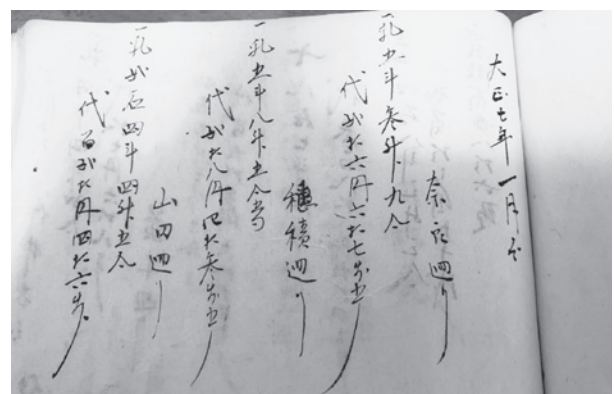 大正七年一月分
奈良廻り
一乳五斗参升九合
代弐拾六円六拾七銭五
穂積廻り
一乳五斗八升五合
代弐拾八円四拾参銭五
山田廻り
一乳弐石四斗四升五合
代百弐拾円四拾六銭